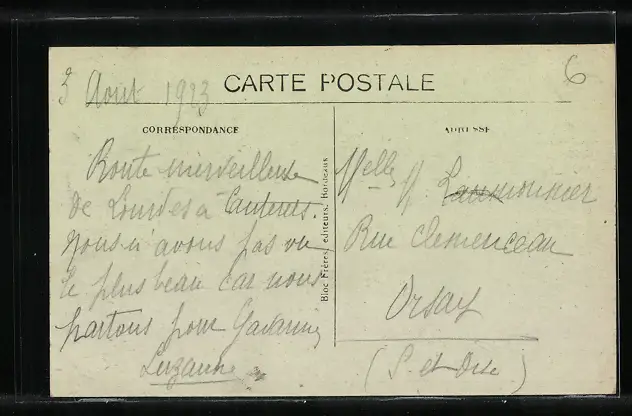 3 Août 1923
CARTE POSTALE
6
CORRESPONDANCE
Route merveilleuse
de Lourdes à Cauterets.
nous n'avons pas vu
le plus beau car nous
partons pour Gavarnie
Suzanne
Bloc Frères, éditeurs, Bordeaux
ADRESSE
Melle
Rue Clemenceau
Orsay
(S. et Oise)